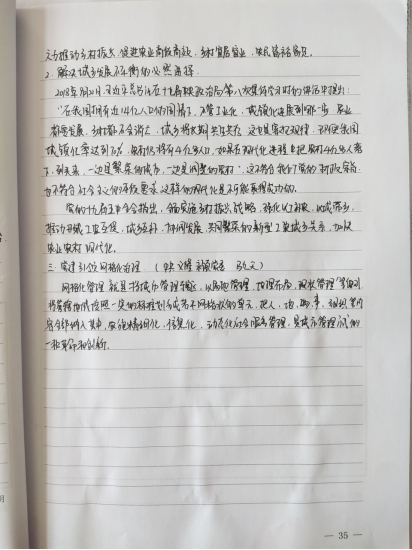 方推动乡村振兴,促进农业高质高效,乡村宜居宜业,农民富裕富足。
2. 解决城乡发展不平衡的必然选择.
2018年9月21日,习近平总书记在十九届中央政治局第八次集体学习时的讲话中指出:
"在我国拥有近14亿人口的国情下,不管工业化、城镇化进展到哪一步,农业
都要发展,乡村都不会消亡,城乡将长期共生共存,这也是客观规律。即便我国
城镇化率达到70%,农村仍将有4亿多人口。如果在现代化进程中把农村4亿多人落
下,到头来"一边是繁荣的城市、一边是凋敝的农村",这不符合我们党的执政宗旨,
也不符合社会主义的本质要求。这样的现代化是不可能取得成功的。
党的十九届五中全会指出,全面实施乡村振兴战略,强化以工补农、以城带乡,
推动形成工农互促、城乡互补、协调发展、共同繁荣的新型工农城乡关系,加快
农业农村现代化。
三. 党建引领网格化治理
网格化管理就是将城市管理辖区,以属地管理、地理布局、现状管理等原则
将管辖地域按照一定的标准划分成若干网格状的单元,把人、地、物、事、组织等内
容全部纳入其中,实施精细化、信息化、动态化社会服务管理,是城市管理
一种革命和创新.
— 35 —